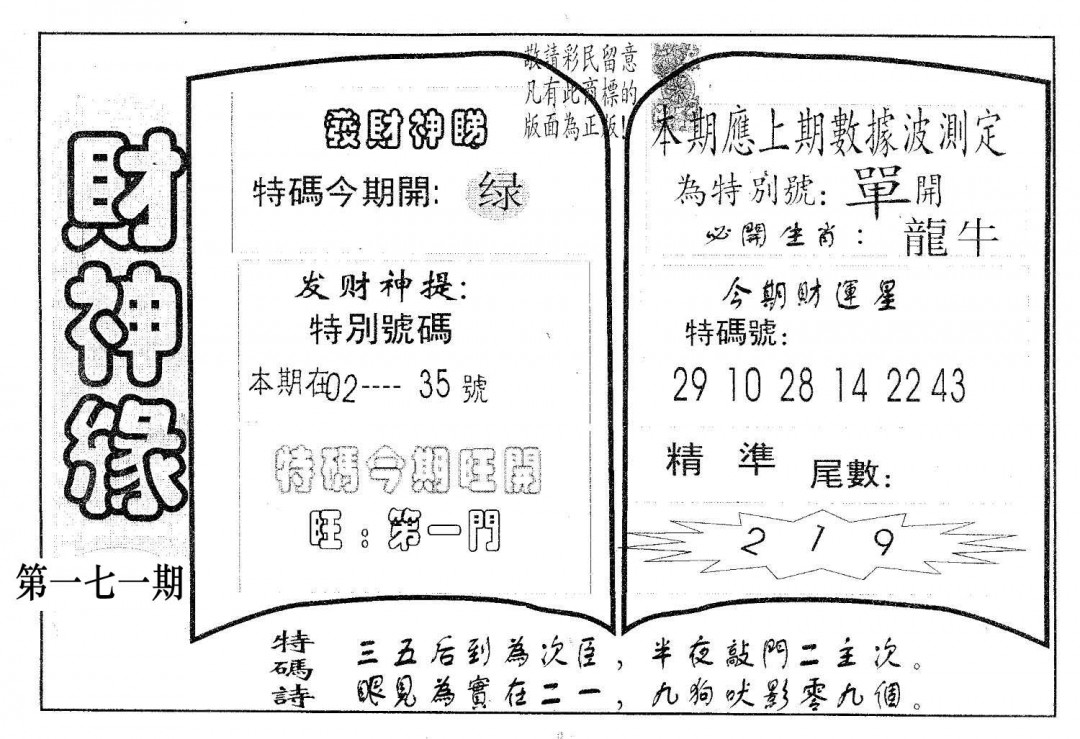 財神緣
第一七一期
敬請彩民留意
凡有此商標的
版面為正版!
發財神睇
特碼今期開: 绿
发财神提:
特別號碼
本期在02---- 35號
特碼今期旺開
旺:第一門
本期應上期數據波測定
為特別號: 單開
必開生肖: 龍牛
今期財運星
特碼號:
29 10 28 14 22 43
精準 尾數:
2 1 9
特碼詩
三五后到為次臣，半夜敲門二主次。
眼見為實在二一，九狗吠影零九個。